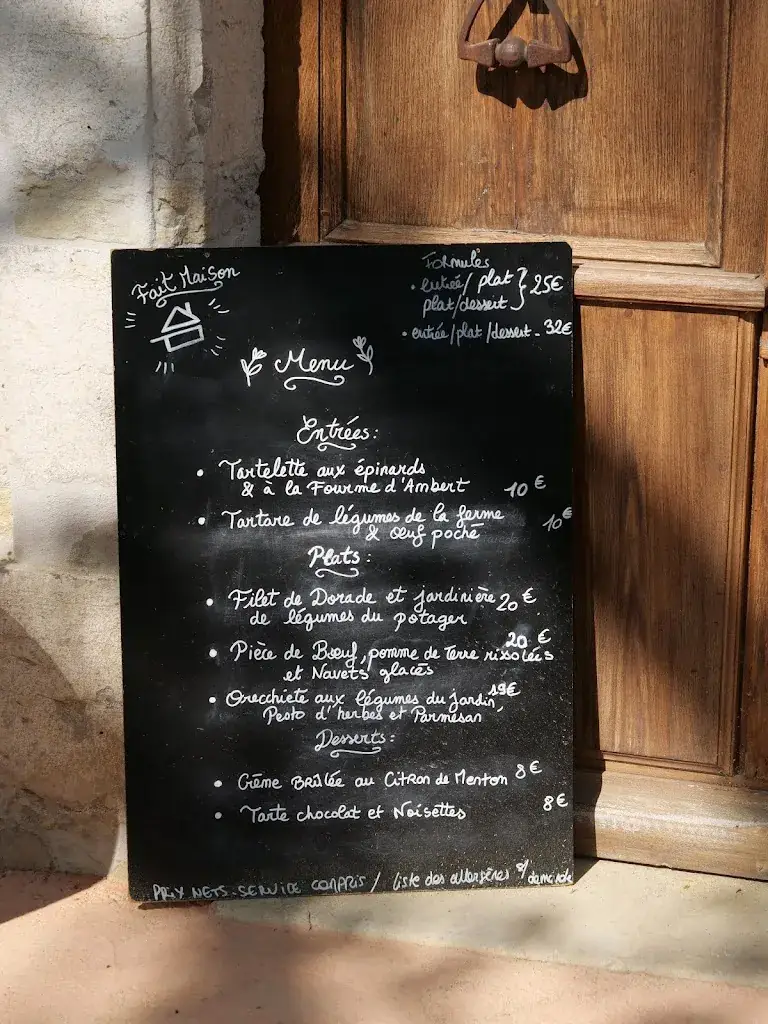 Fait Maison
Formules
• entrée/ plat } 25€
plat/dessert
• entrée/plat/dessert - 32€
Menu
Entrées:
• Tartelette aux épinards
& à la Fourme d'Ambert 10 €
• Tartare de légumes de la ferme 10€
& œuf poché
Plats:
• Filet de Dorade et jardinière 20 €
de légumes du potager
20 €
• Pièce de Bœuf, pomme de Terre rissolées
et Navets glacés
• Orecchiete aux légumes du jardin, 19€
Pesto d'herbes et Parmesan
Desserts:
• Crème Brûlée au Citron de Menton 8€
• Tarte chocolat et Noisettes 8€
PRIX NETS - SERVICE COMPRIS / liste des allergènes s/ demande